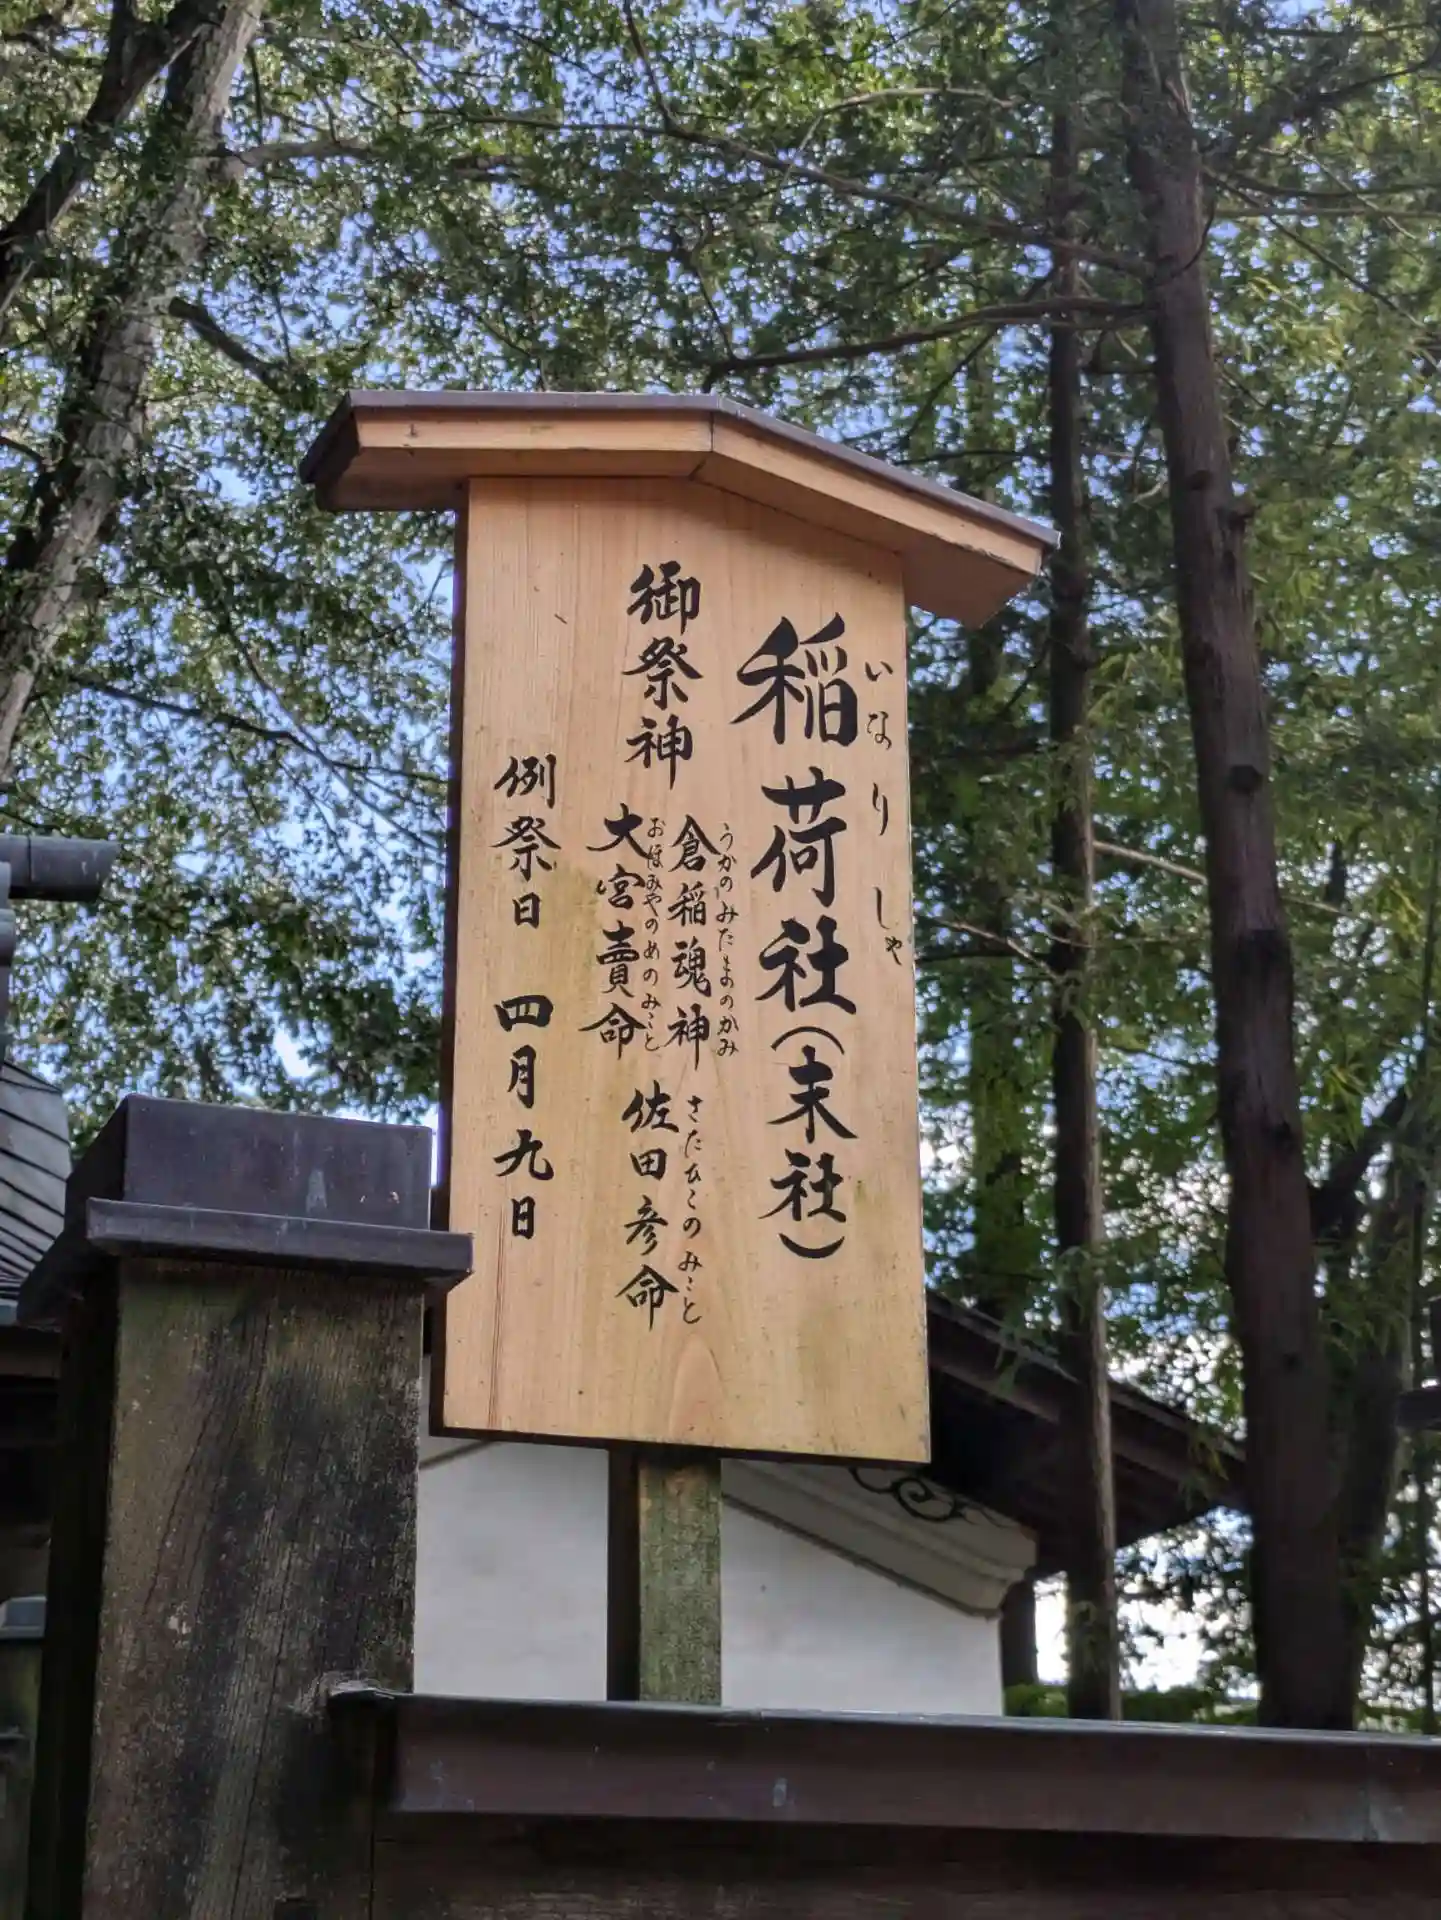 稲荷社(末社)
いなりしゃ
御祭神
倉稲魂神
うかのみたまのかみ
大宮賣命
おほみやのめのみこと
佐田彦命
さたひこのみこと
例祭日 四月九日